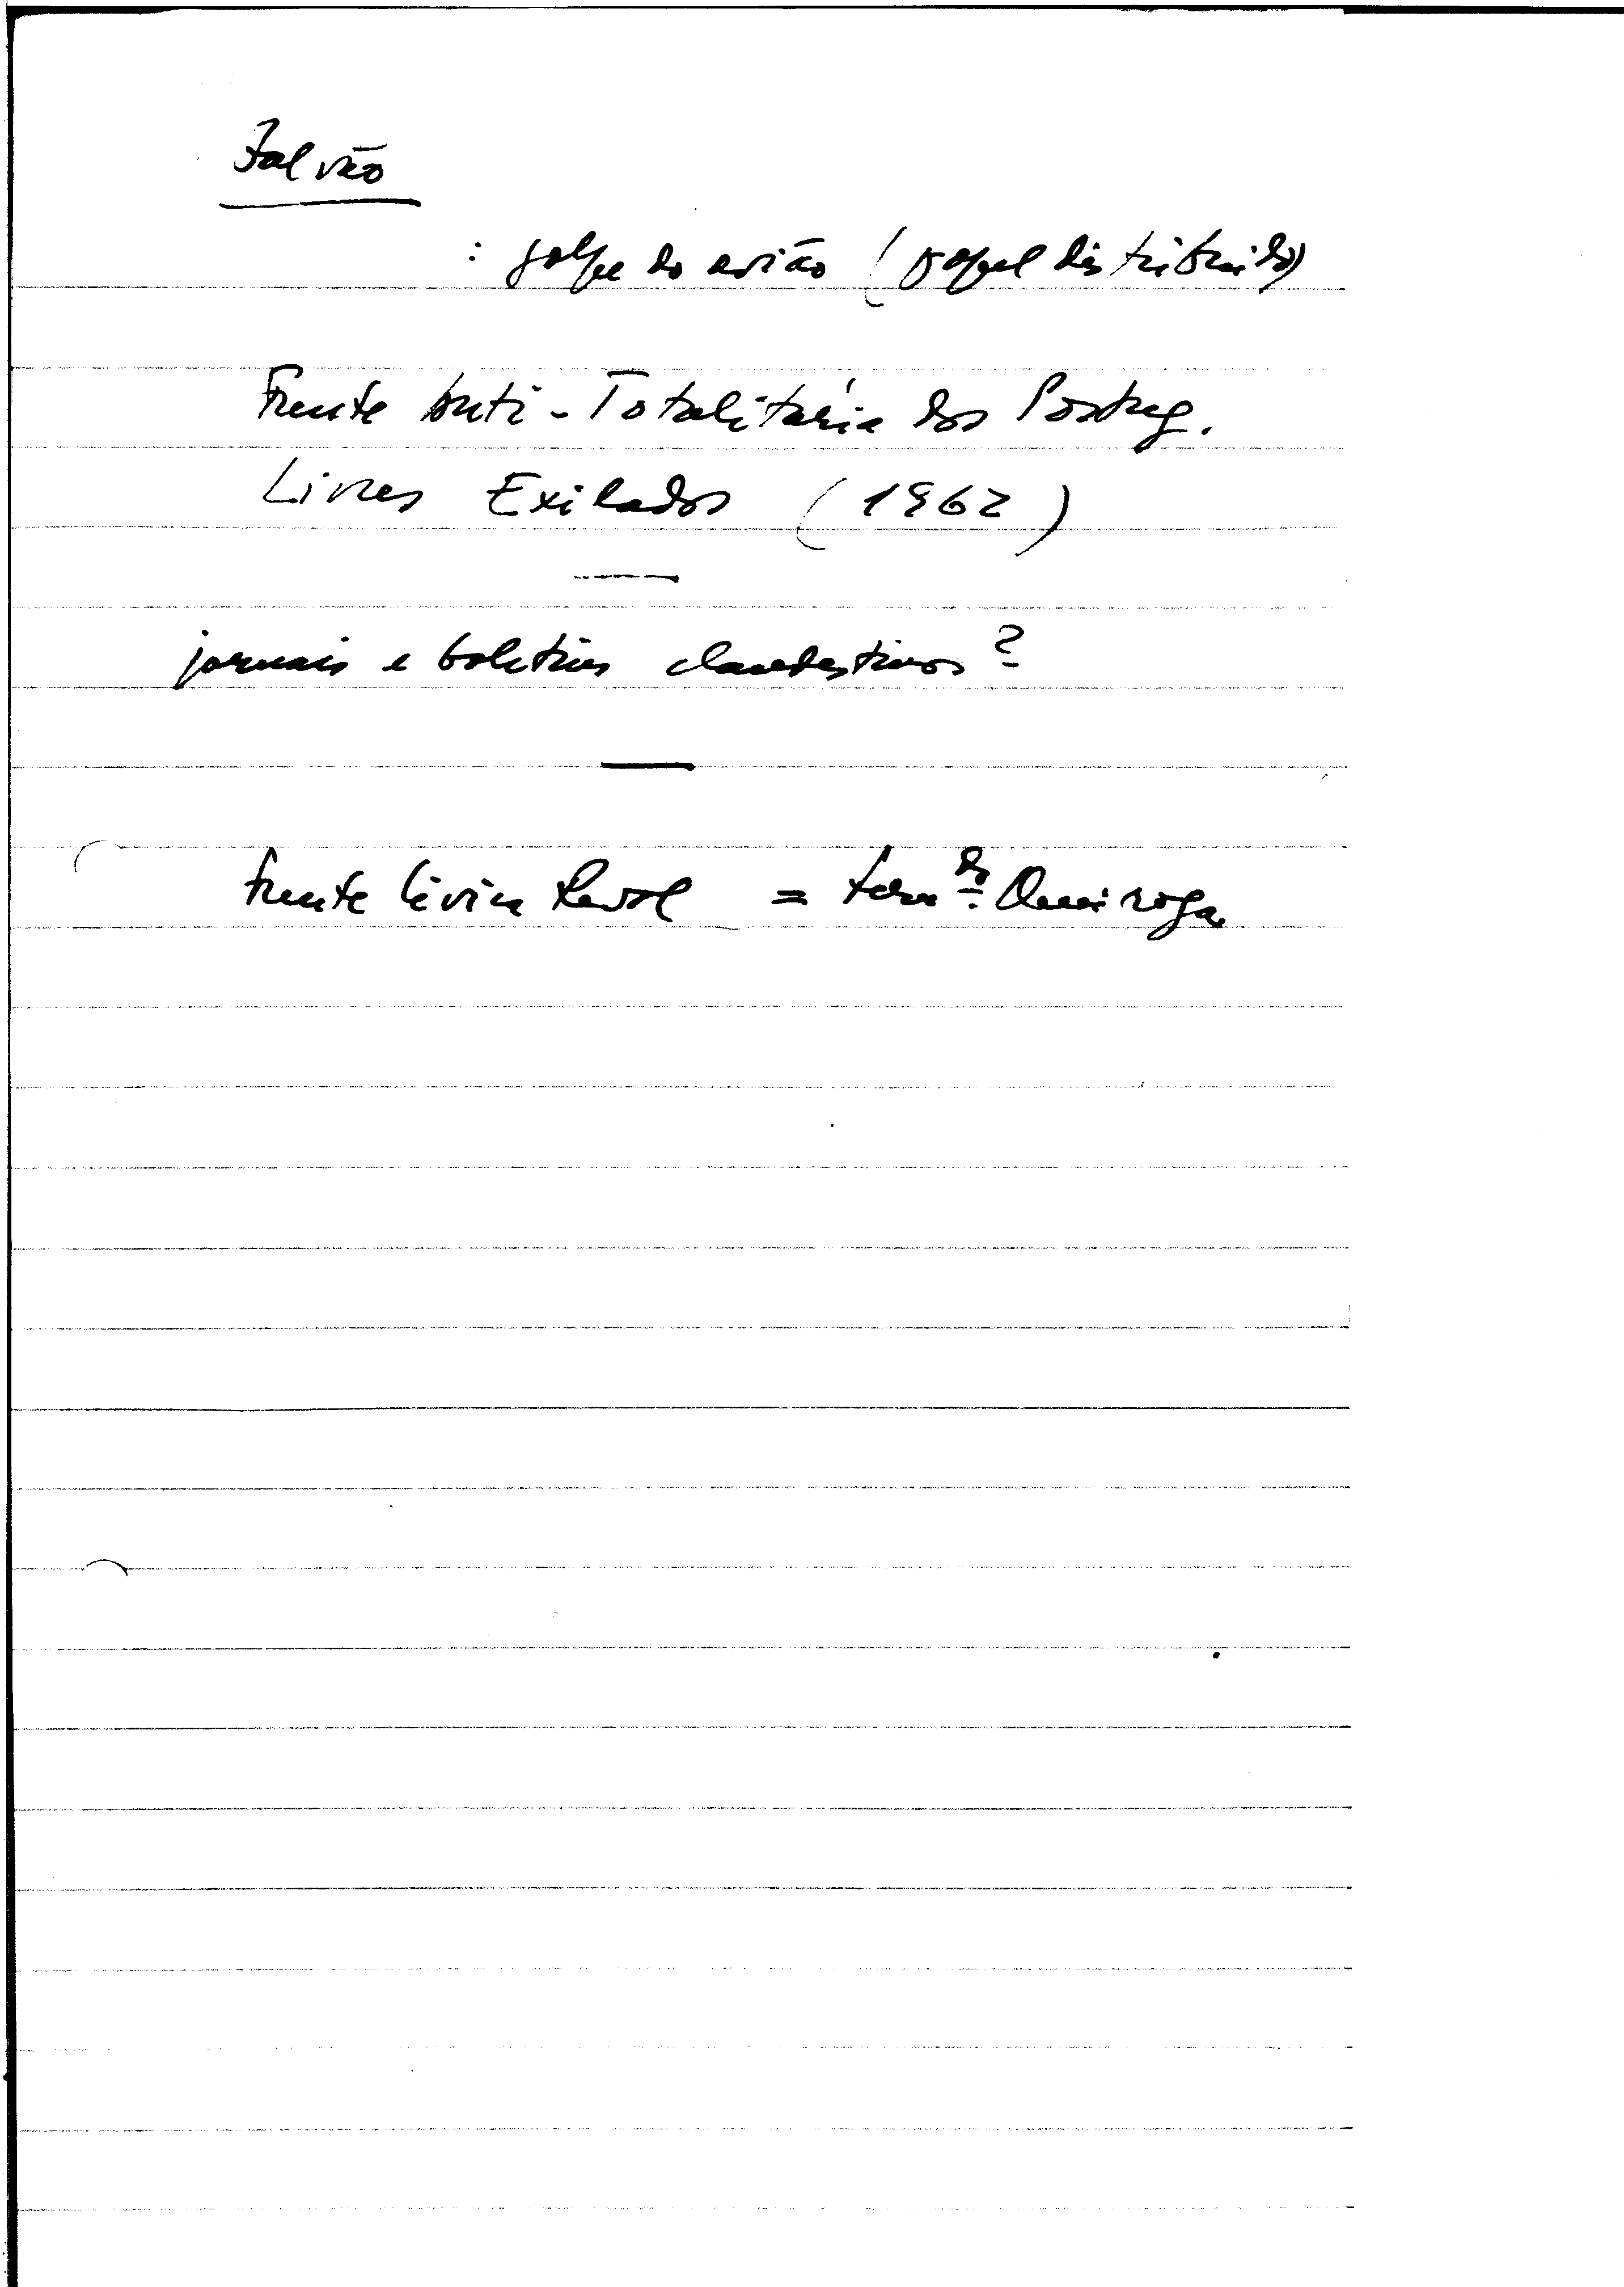 Galvão
: golpe do avião (papel distribuido)
Frente Anti-Totalitária dos Portug.
Livres Exilados (1962)
jornais e boletins clandestinos?
Frente Cívica Revol = Fern do Queiroga